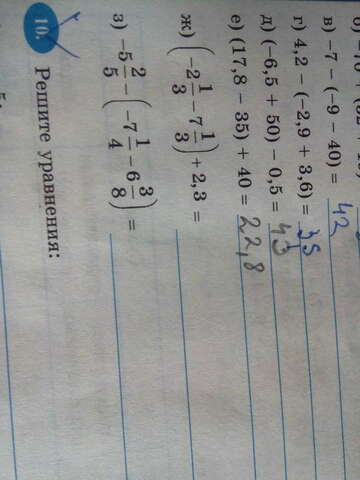 в) −7 − (−9 − 40) = 42
г) 4,2 − (−2,9 + 3,6) = 35
д) (−6,5 + 50) − 0,5 = 43
е) (17,8 − 35) + 40 = 22,8
ж) (−2 1/3 − 7 1/3) + 2,3 =
з) −5 2/5 − (−7 1/4 − 6 3/8) =
10. Решите уравнения: